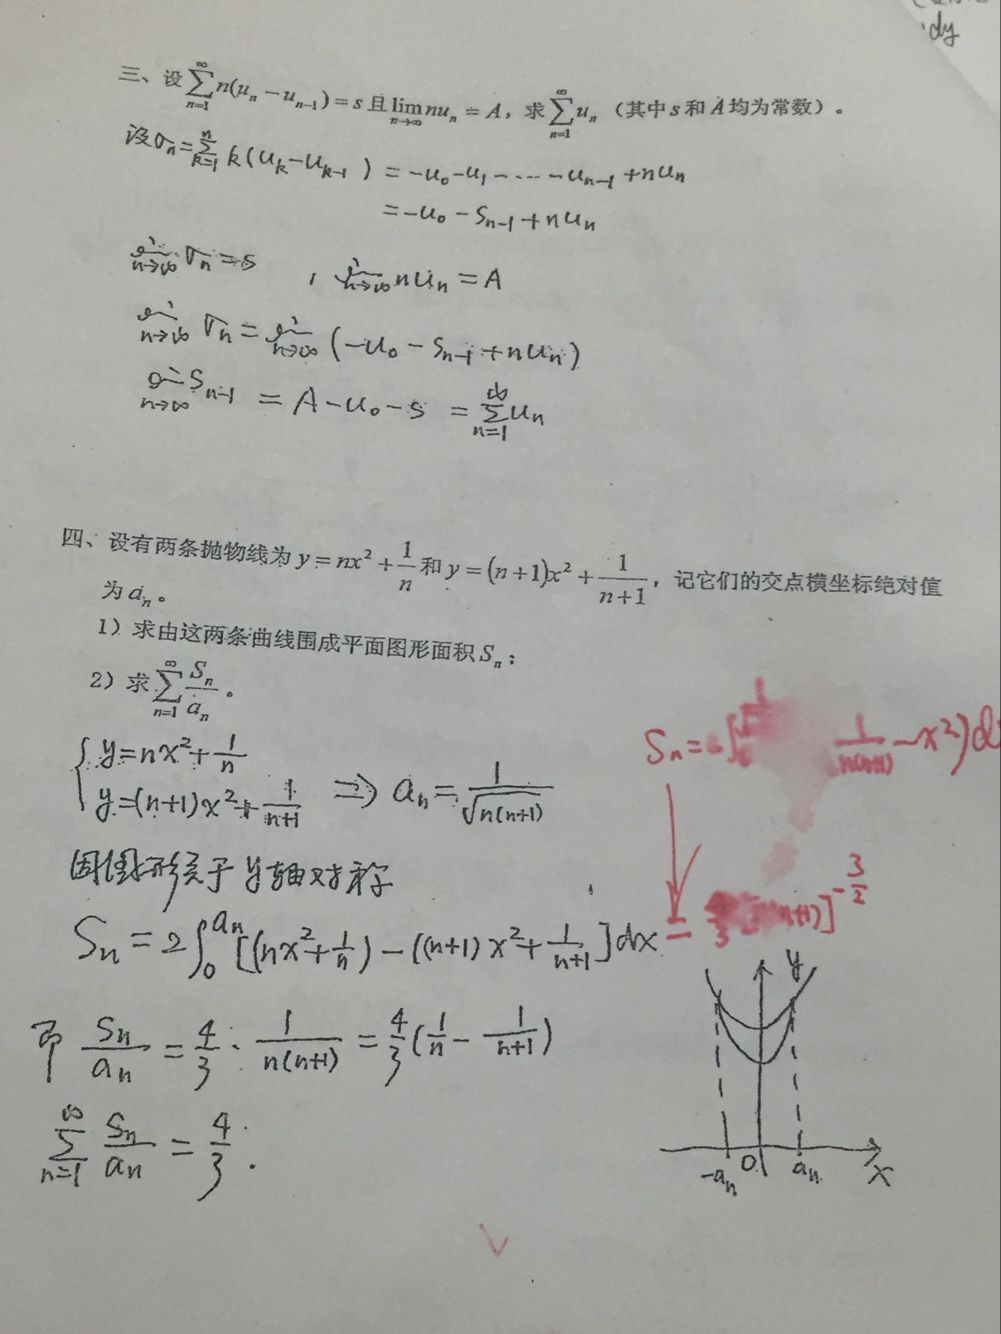 dy
三、设∑_{n=1}^{∞} n(u_n − u_{n−1}) = s 且 lim_{n→∞} nu_n = A，求 ∑_{n=1}^{∞} u_n （其中 s 和 A 均为常数）。
设σ_n = ∑_{k=1}^{n} k(u_k − u_{k−1}) = −u_0 − u_1 − ⋯ − u_{n−1} + nu_n
= −u_0 − S_{n−1} + nu_n
lim_{n→∞} σ_n = s , lim_{n→∞} nu_n = A
lim_{n→∞} σ_n = lim_{n→∞} (−u_0 − S_{n−1} + nu_n)
lim_{n→∞} S_{n−1} = A − u_0 − s = ∑_{n=1}^{∞} u_n
四、设有两条抛物线为 y = nx² + 1/n 和 y = (n+1)x² + 1/(n+1)，记它们的交点横坐标绝对值
为 a_n。
1）求由这两条曲线围成平面图形面积 S_n；
2）求 ∑_{n=1}^{∞} S_n/a_n。
{ y = nx² + 1/n
y = (n+1)x² + 1/(n+1) ⇒ a_n = 1/√(n(n+1))
S_n = 1/(n(n+1)) − x²) d
因图形关于 y 轴对称
S_n = 2∫_0^{a_n} [(nx² + 1/n) − ((n+1)x² + 1/(n+1)]dx = n+1)]^{−3/2}
即 S_n/a_n = 4/3 · 1/(n(n+1)) = 4/3 (1/n − 1/(n+1))
∑_{n=1}^{∞} S_n/a_n = 4/3.
y
−a_n 0 a_n x